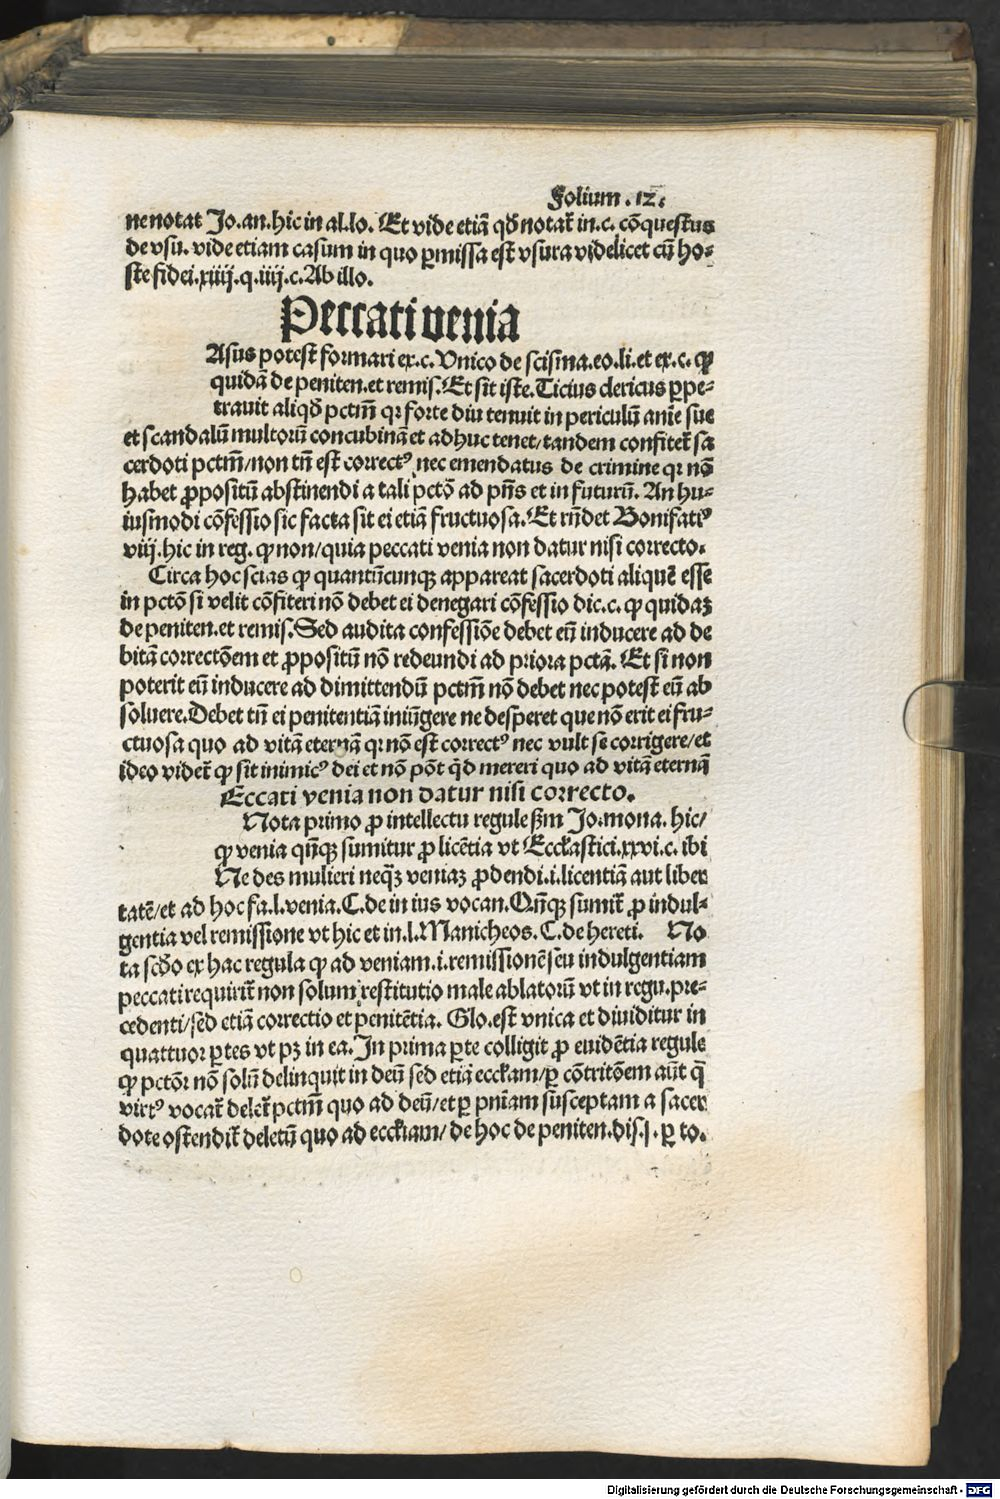 Folium .12.
ne notat Jo.an.hic in al.lo. Et vide etiã qđ notat̃ in.c. cõquestus
de vsu. vide etiam casum in quo ꝑmissa est vsura videlicet cũ ho⸗
ste fidei.xiiij.q.iiij.c.Ab illo.
Peccati venia
Asus potest formari ex.c.Vnico de scisma.eo.li.et ex.c. ꝙ
quidã de peniten.et remis. Et sit iste. Ticius clericus ꝑpe⸗
travit aliqđ pctm̃ qꝛ forte diu tenuit in periculũ anie sue
et scandalũ multoꝛũ concubinã et adhuc tenet/tandem confitet̃ sa
cerdoti pctm̃/non tñ est correctꝰ nec emendatus de crimine qꝛ nõ
habet ꝓpositũ abstinendi a tali pctõ ad pñs et in futurũ. An hu⸗
iusmodi cõfessio sic facta sit ei etiã fructuosa. Et rñdet Bonifatiꝰ
viij.hic in reg. ꝙ non/quia peccati venia non datur nisi correcto.
Circa hoc scias ꝙ quantũcunqꝫ appareat sacerdoti aliquẽ esse
in pctõ si velit cõfiteri nõ debet ei denegari cõfessio dic.c. ꝙ quidaꝫ
de peniten.et remis. Sed audita confessiõe debet eũ inducere ad de
bitã correctõem et ꝓpositũ nõ redeundi ad priora pctã. Et si non
poterit eũ inducere ad dimittendũ pctm̃ nõ debet nec potest eũ ab
soluere. Debet tñ ei penitentiã iniũgere ne desperet que nõ erit ei fru⸗
ctuosa quo ad vitã eternã qꝛ nõ est correctꝰ nec vult se corrigere/et
ideo videt̃ ꝙ sit inimicꝰ dei et nõ põt q̃d mereri quo ad vitã eternã
Eccati venia non datur nisi coꝛrecto.
Nota primo ꝓ intellectu regule sm̃ Jo.mona. hic/
ꝙ venia qñqꝫ sumitur ꝓ licẽtia vt Eccłastici.xxvi.c. ibi
Ne des mulieri neqꝫ̃ veniaꝫ ꝓdendi.i.licentiã aut liber
tatẽ/et ad hoc fa.l.venia. C.de in ius vocan. Qñqꝫ sumit̃ ꝓ indul⸗
gentia vel remissione vt hic et in.l.Manicheos. C.de hereti. No
ta scđo ex hac regula ꝙ ad veniam.i.remissionẽ seu indulgentiam
peccati requirit̃ non solum restitutio male ablatoꝛũ vt in regu.pre⸗
cedenti/sed etiã correctio et penitẽtia. Glo.est vnica et diuiditur in
quattuoꝛ ꝑtes vt pꝫ in ea. In prima ꝑte colligit ꝓ euidẽtia regule
ꝙ pctõꝛ nõ solũ delinquit in deũ sed etiã eccłam/ꝑ cõtritõem aũt q̃
virtꝰ vocat̃ delet̃ pctm̃ quo ad deũ/et ꝑ pniam susceptam a sacer
dote ostendit̃ deletũ quo ad eccłiam/ de hoc de peniten.dis.j. ꝑ to.
Digitalisierung gefördert durch die Deutsche Forschungsgemeinschaft - DFG